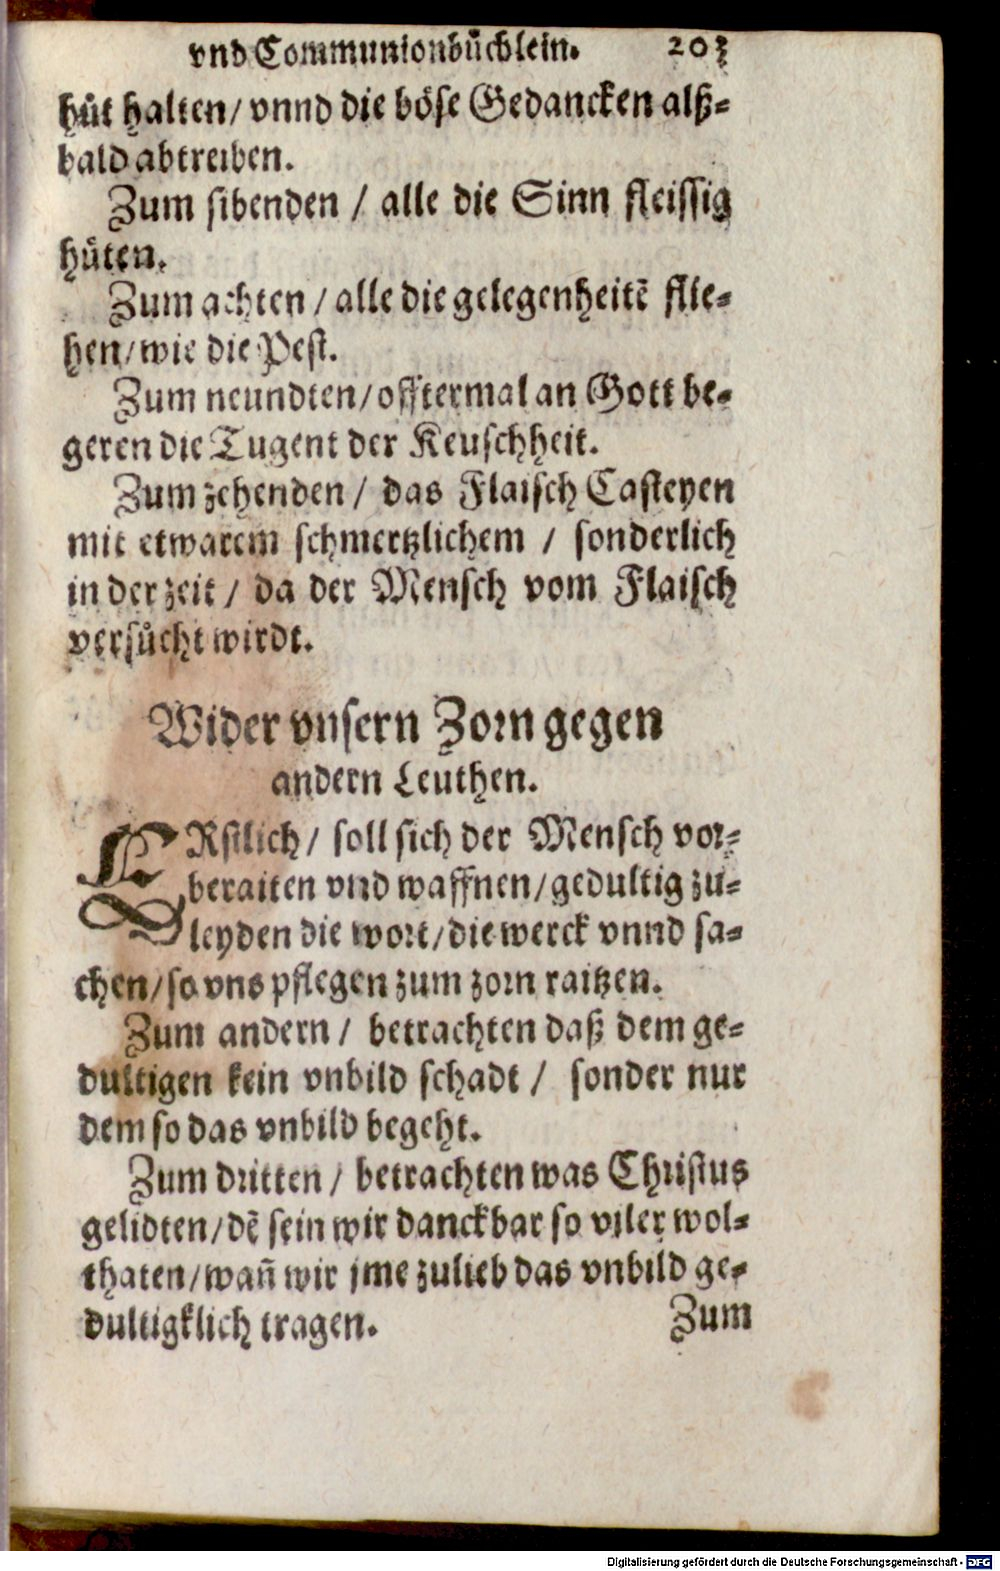 vnd Communionbüchlein. 203
hůt halten/ vnnd die böse Gedancken alß-
bald abtreiben.
Zum sibenden / alle die Sinn fleissig
hüten.
Zum achten / alle die gelegenheitẽ flie-
hen/ wie die Pest.
Zum neundten/ offtermal an Gott be-
geren die Tugent der Keuschheit.
Zum zehenden / das Flaisch Casteyen
mit etwarem schmertzlichem / sonderlich
in der zeit / da der Mensch vom Flaisch
versůcht wirdt.
Wider vnsern Zorn gegen
andern Leuthen.
ERstlich / soll sich der Mensch vor-
beraiten vnd waffnen/ gedultig zu-
leyden die wort/ die werck vnnd sa-
chen/ so vns pflegen zum zorn raitzen.
Zum andern / betrachten daß dem ge-
dultigen kein vnbild schadt / sonder nur
dem so das vnbild begeht.
Zum dritten / betrachten was Christus
gelidten/ dẽ sein wir danckbar so viler wol-
thaten/ wañ wir jme zulieb das vnbild ge-
dultigklich tragen. Zum
Digitalisierung gefördert durch die Deutsche Forschungsgemeinschaft - DFG